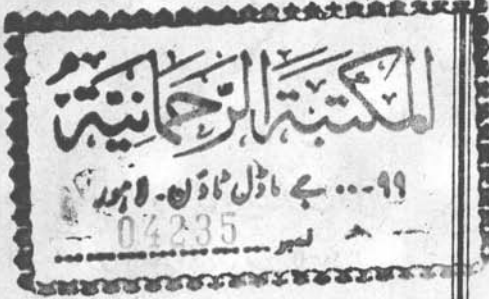 المكتبة الرحمانية
۹۹... جے ماڈل ٹاؤن۔ لاہور
نمبر 04235